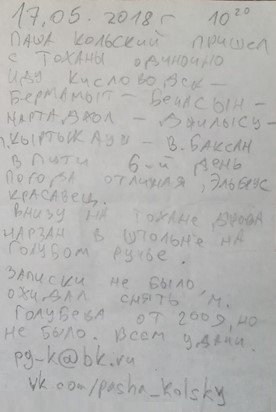 17.05.2018г 10²⁰
ПАША КОЛЬСКИЙ ПРИШЕЛ
С ТОХАНЫ ОДИНОЧНО
ИДУ КИСЛОВОДСК –
БЕРМАМЫТ – БЕЧАСЫН –
НАРТАДЖОЛ – ДЖИЛЫСУ –
П. КЫРТЫКАУШ – В. БАКСАН
В ПУТИ 6-Й ДЕНЬ
ПОГОДА ОТЛИЧНАЯ, ЭЛЬБРУС
КРАСАВЕЦ.
ВНИЗУ НА ТОХАНЕ ДРОВА
НАРЗАН В ШТОЛЬНЕ НА
ГОЛУБОМ РУЧЬЕ.
ЗАПИСКИ НЕ БЫЛО
ОЖИДАЛ СНЯТЬ М.
ГОЛУБЕВА ОТ 2009, НО
НЕ БЫЛО. ВСЕМ УДАЧИ.
pg-k@bk.ru
vk.com/pasha_kolsky